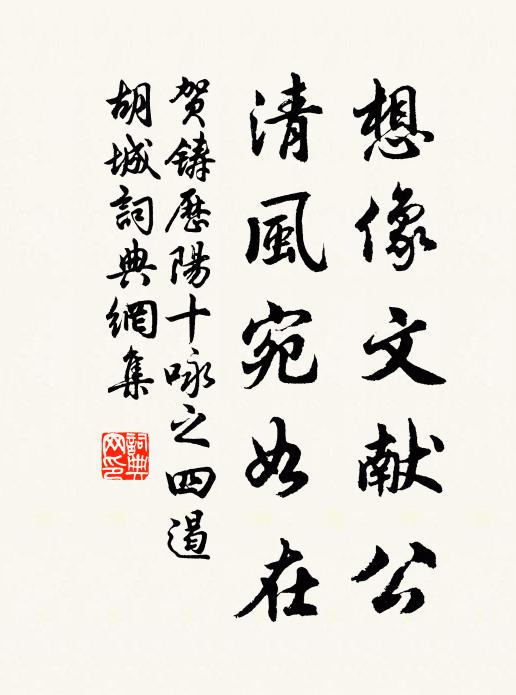 想像文献公
清風宛如在
賀鑄歷陽十咏之四遏
胡城詞典網集
詞典网印